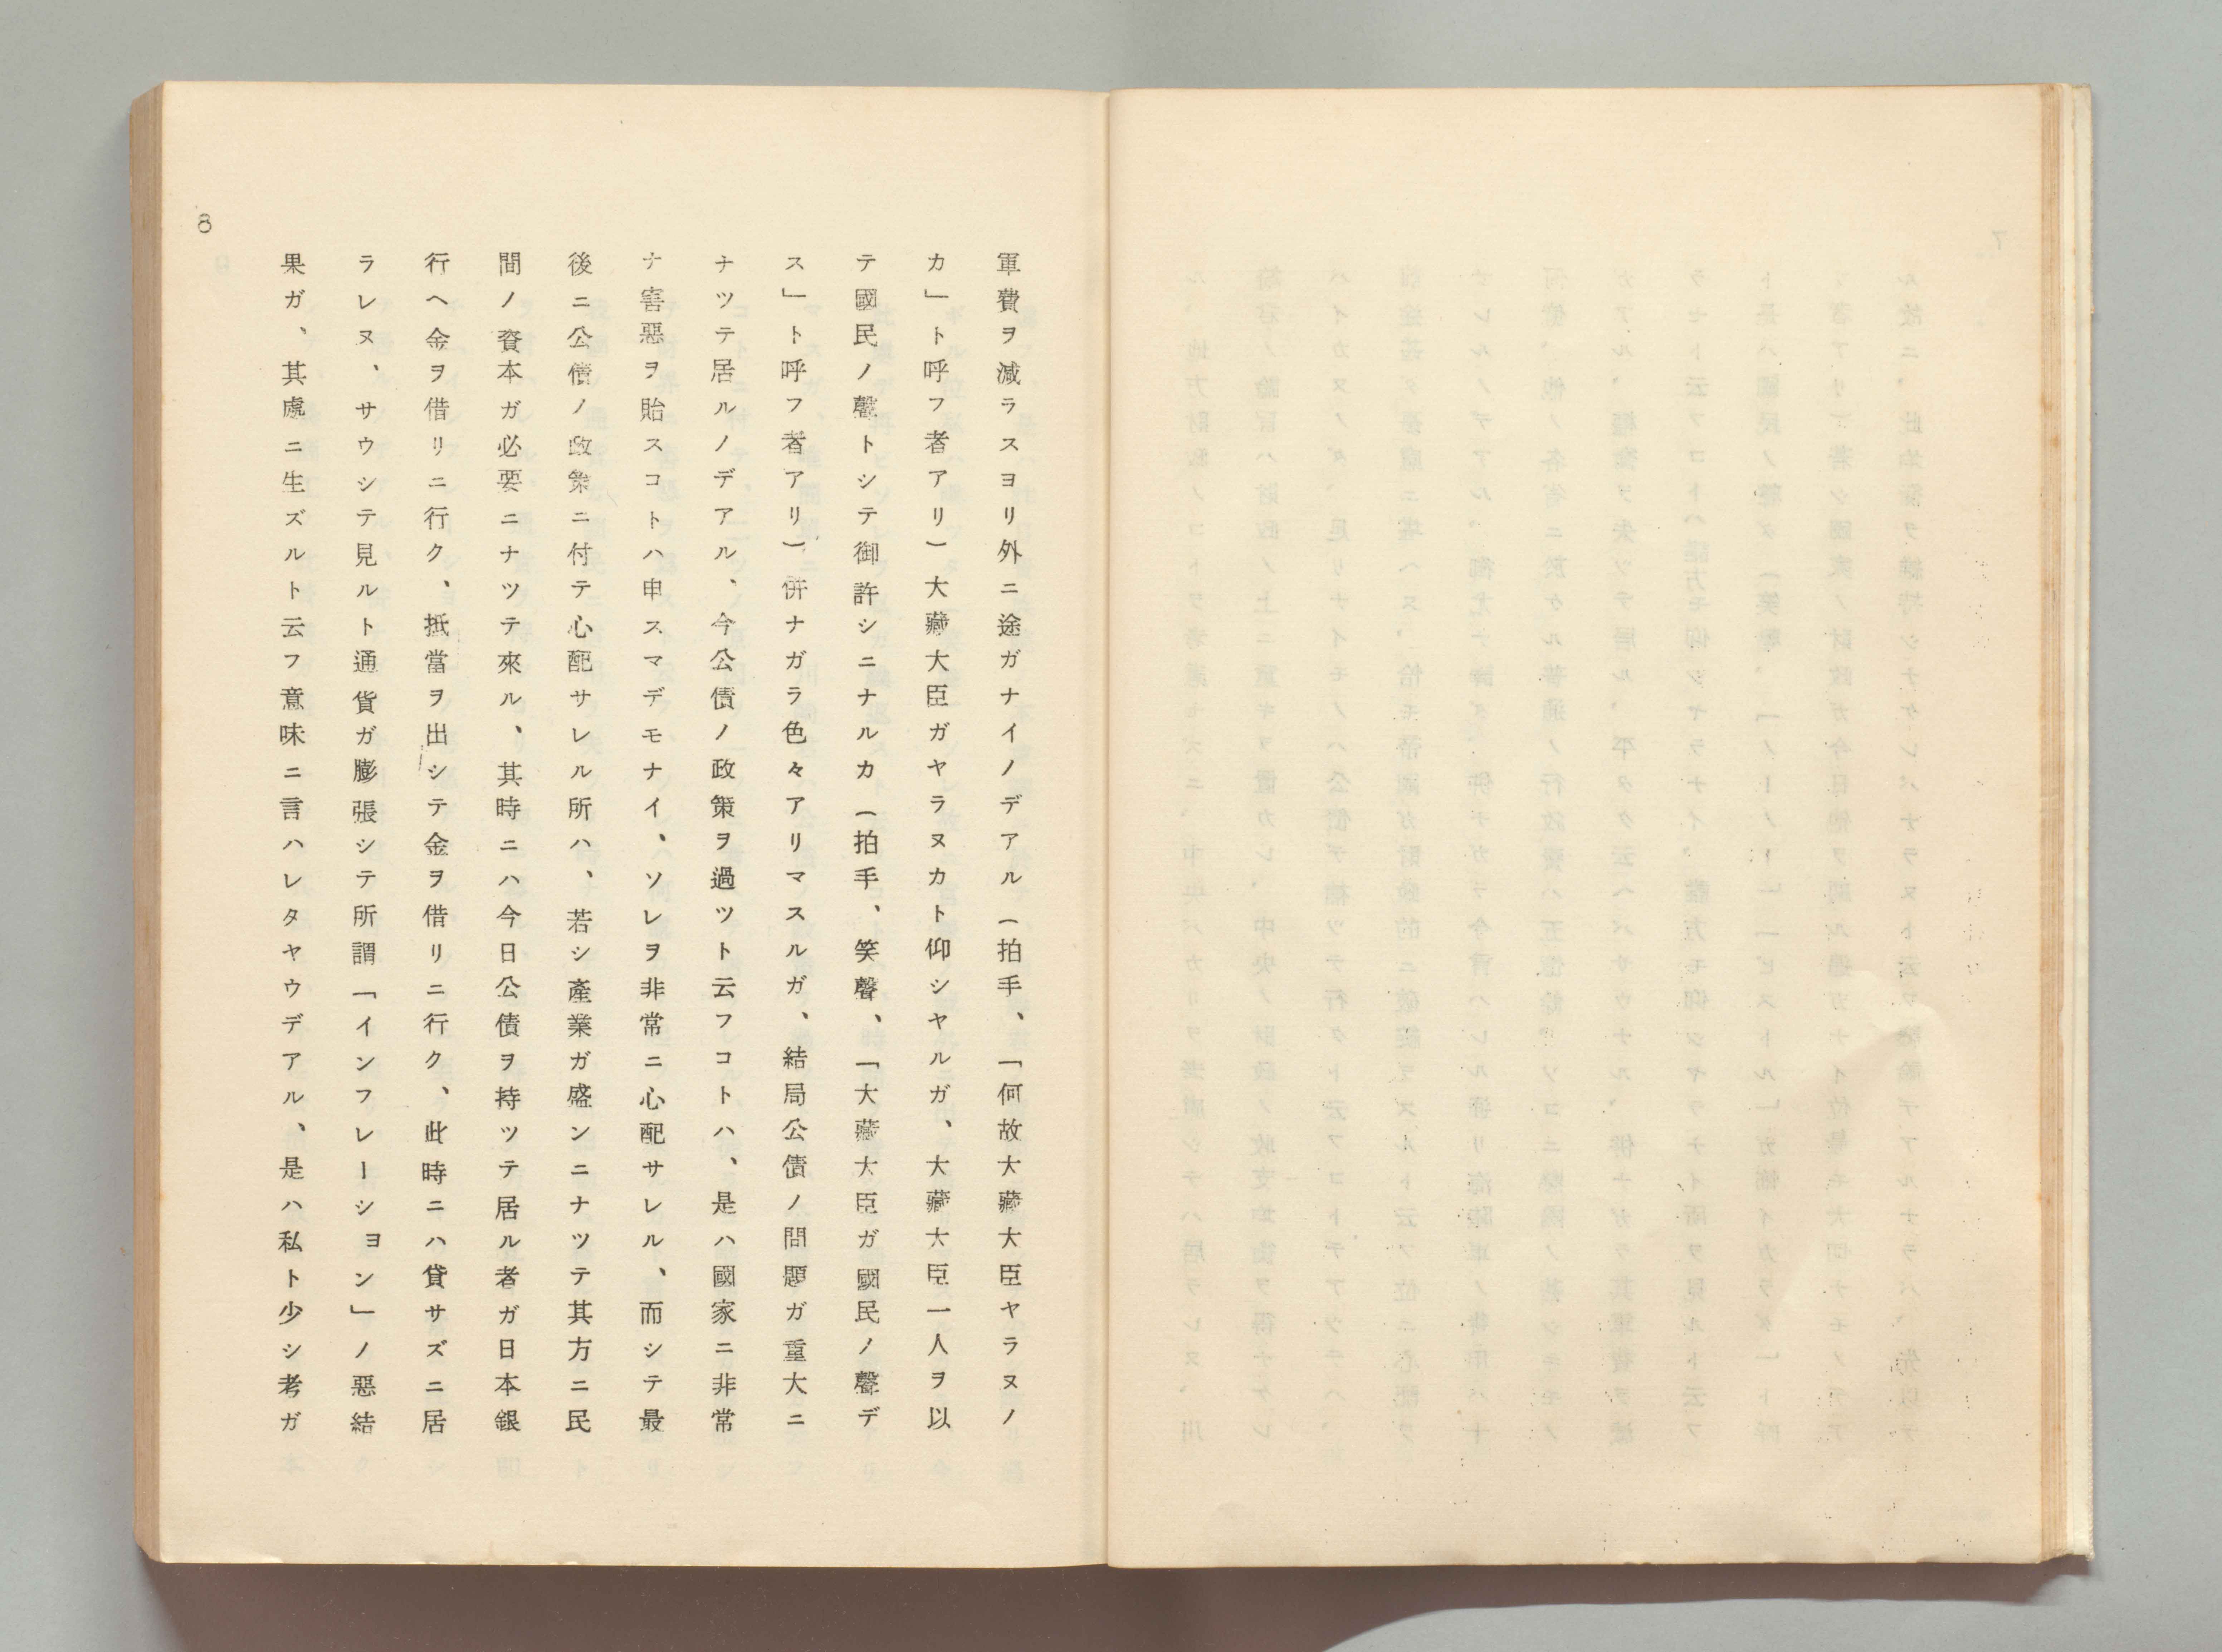 軍費ヲ減ラスヨリ外ニ途ガナイノデアル(拍手、「何故大藏大臣ヤラヌノ
カ」ト呼フ者アリ)大藏大臣ガヤラヌカト仰シヤルガ、大藏大臣一人ヲ以
テ國民ノ聲トシテ御許シニナルカ(拍手、笑聲、「大藏大臣ガ國民ノ聲デ
ス」ト呼フ者アリ)併ナガラ色々アリマスルガ、結局公債ノ問題ガ重大ニ
ナツテ居ルノデアル、今公債ノ政策ヲ過ツト云フコトハ、是ハ國家ニ非常
ナ害惡ヲ貽スコトハ申スマデモナイ、ソレヲ非常ニ心配サレル、而シテ最
後ニ公債ノ政策ニ付テ心配サレル所ハ、若シ產業ガ盛ンニナツテ其方ニ民
間ノ資本ガ必要ニナツテ來ル、其時ニハ今日公債ヲ持ツテ居ル者ガ日本銀
行ヘ金ヲ借リニ行ク、抵當ヲ出シテ金ヲ借リニ行ク、此時ニハ貸サズニ居
ラレヌ、サウシテ見ルト通貨ガ膨張シテ所謂「インフレーシヨン」ノ惡結
果ガ、其處ニ生ズルト云フ意味ニ言ハレタヤウデアル、是ハ私ト少シ考ガ
8